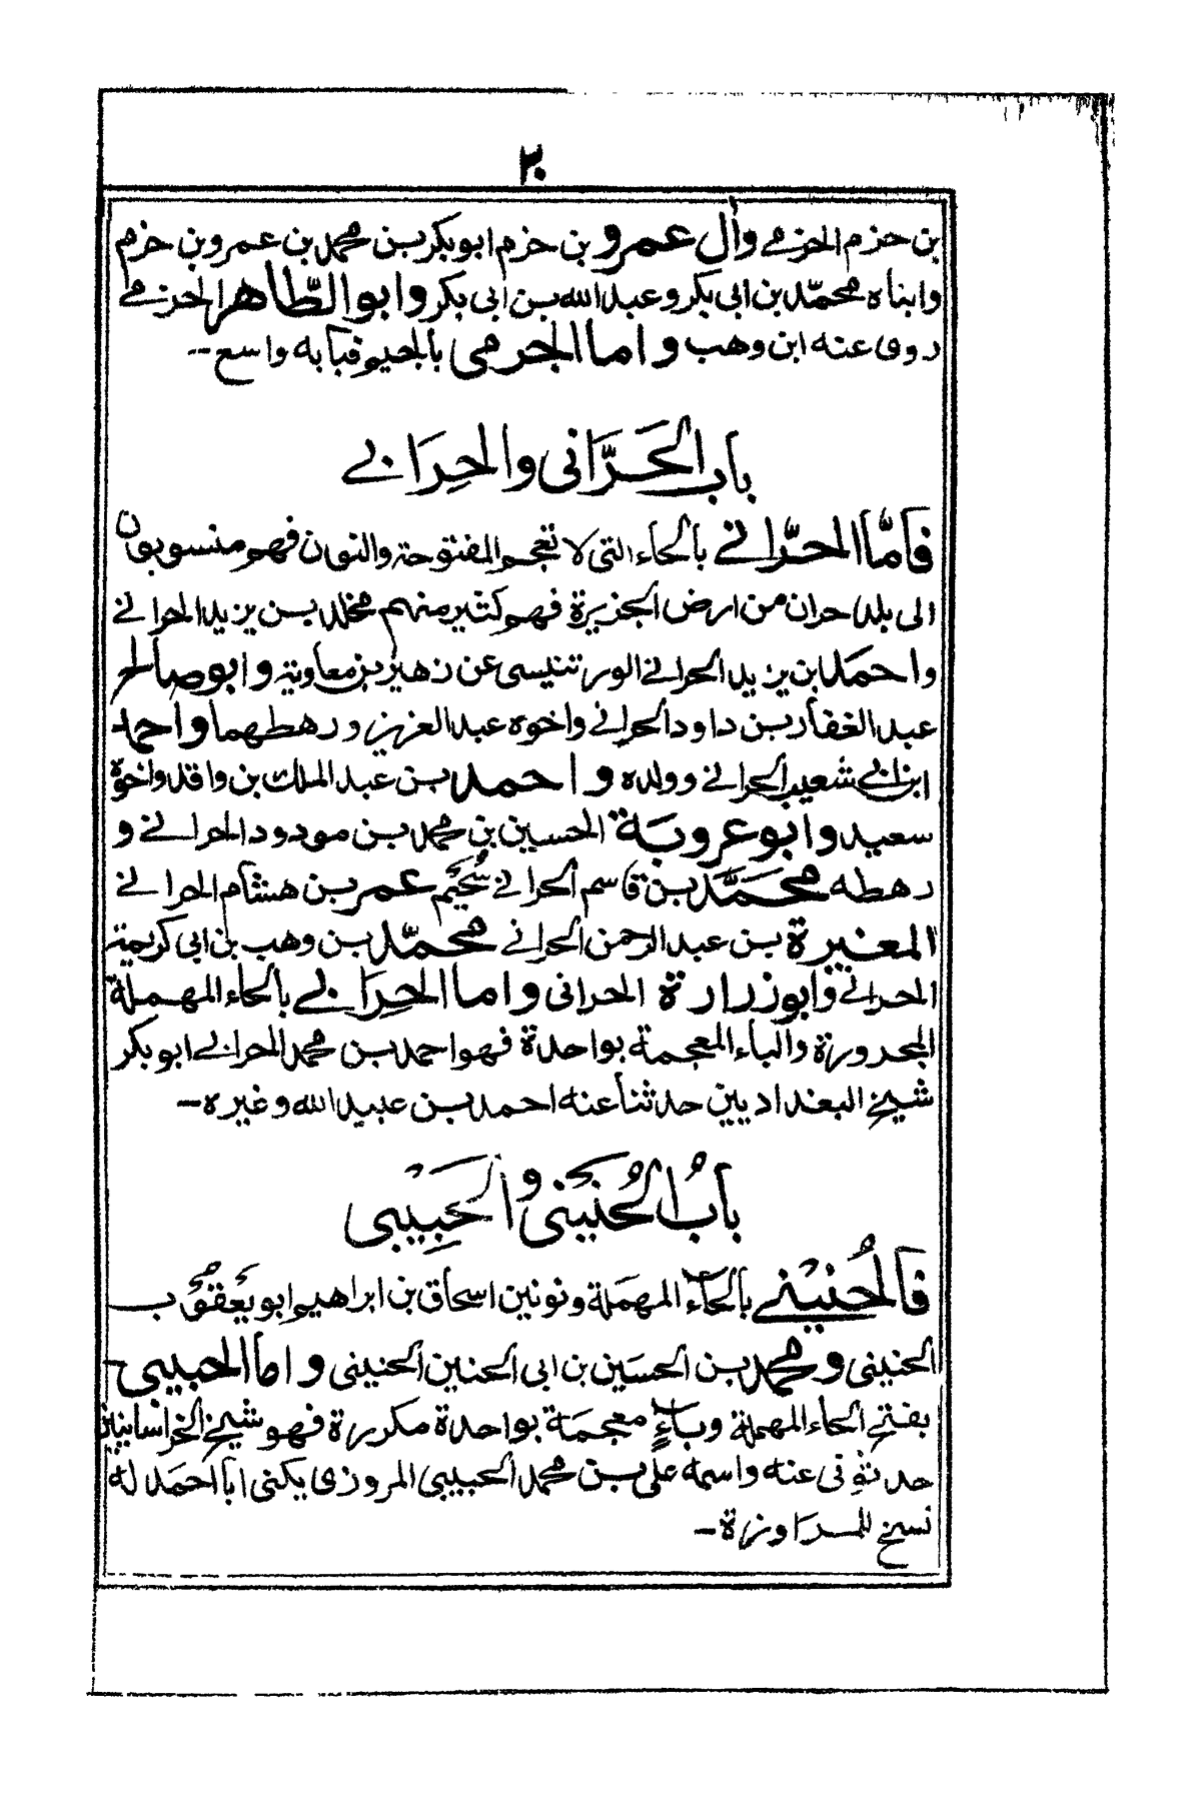 ٢٠
بن حزم الحزمي وآل عمرو بن حزم ابو بكر بن محمد بن عمرو بن حزم
وابناه محمّد بن ابى بكر وعبد الله بن ابى بكر وابو الطّاهر الحزمي
روى عنه ابن وهب واما الجرمى بالجيم فبابه واسع--
باب الحَرَّانى والحِرَابي
فأمّا الحرّاني بالحاء التى لا تعجم المفتوحة والنون فهو منسوبون
الى بلد حران من ارض الجزيرة فهو كثير منهم مخلد بن يزيد الحراني
واحمد بن يزيد الحراني الورتنيسى عن زهير بن معاوية وابو صالح
عبد الغفار بن داود الحراني واخوه عبد العزيز ورهطهما واحمد
ابن ابي شعيب الحراني وولده واحمد بن عبد الملك بن واقد واخوه
سعيد وابو عروبة الحسين بن محمد بن مودود الحراني و
رهطه محمّد بن قاسم الحراني سُحَيم عمر بن هشام الحراني
المغيرة بن عبد الرحمن الحراني محمّد بن وهب بن ابى كريمة
الحراني وابو زرارة الحرانى واما الحِرَابي بالحاء المهملة
المجرورة والباء المعجمة بواحدة فهو احمد بن محمد الحرابي ابو بكر
شيخ البغداديين حدثنا عنه احمد بن عبيد الله وغيره—
بابُ الحُنَينى والحَبِيبى
فالحُنيني بالحاء المهملة ونونين اسحاق بن ابراهيم ابو يَعقوُب
الحنينى ومحمد بن الحسَين بن ابى الحنين الحنينى واما الحبيبى
بفتح الحاء المهملة وباءٍ معجمة بواحدة مكررة فهو شيخ الخراسانيين
حدثونى عنه واسمه على بن محمد الحبيبى المروزى يكنى ابا احمد له
نسخ للمراوزة—